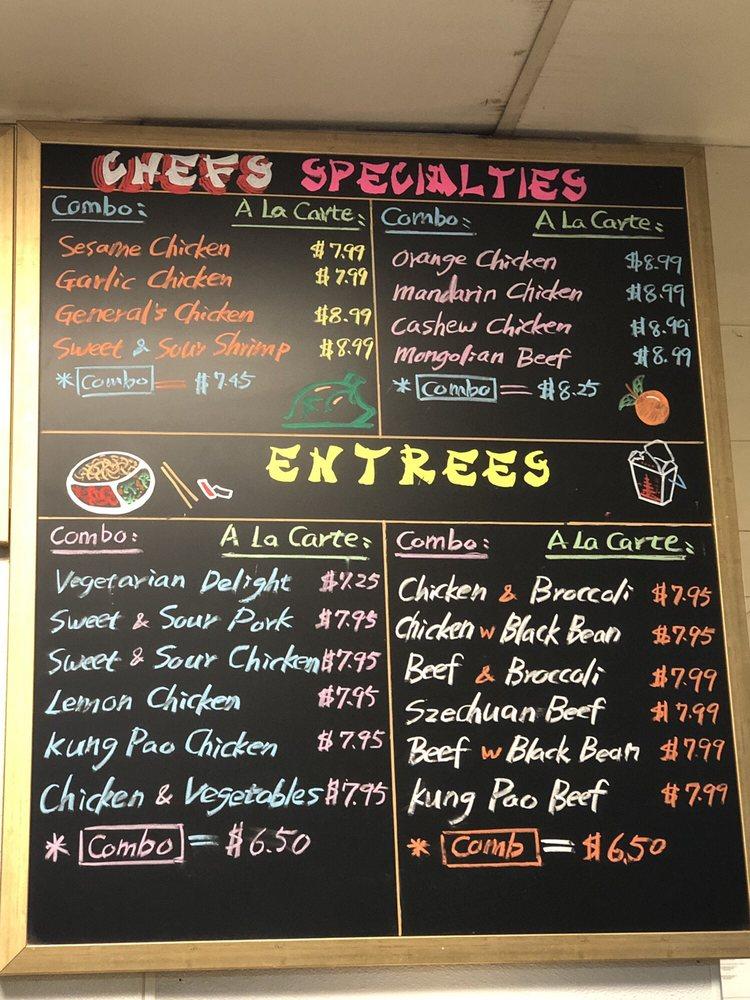 CHEFS SPECIALTIES
Combo: A La Carte:
Sesame Chicken $7.99
Garlic Chicken $7.99
General's Chicken $8.99
Sweet & Sour Shrimp $8.99
* Combo = $7.45
Combo: A La Carte:
Orange Chicken $8.99
Mandarin Chicken $8.99
Cashew Chicken $8.99
Mongolian Beef $8.99
* Combo = $8.25
ENTREES
Combo: A La Carte:
Vegetarian Delight $7.25
Sweet & Sour Pork $7.95
Sweet & Sour Chicken $7.95
Lemon Chicken $7.95
Kung Pao Chicken $7.95
Chicken & Vegetables $7.95
* Combo = $6.50
Combo: A La Carte:
Chicken & Broccoli $7.95
Chicken w Black Bean $7.95
Beef & Broccoli $7.99
Szechuan Beef $7.99
Beef w Black Bean $7.99
Kung Pao Beef $7.99
* Comb = $6.50